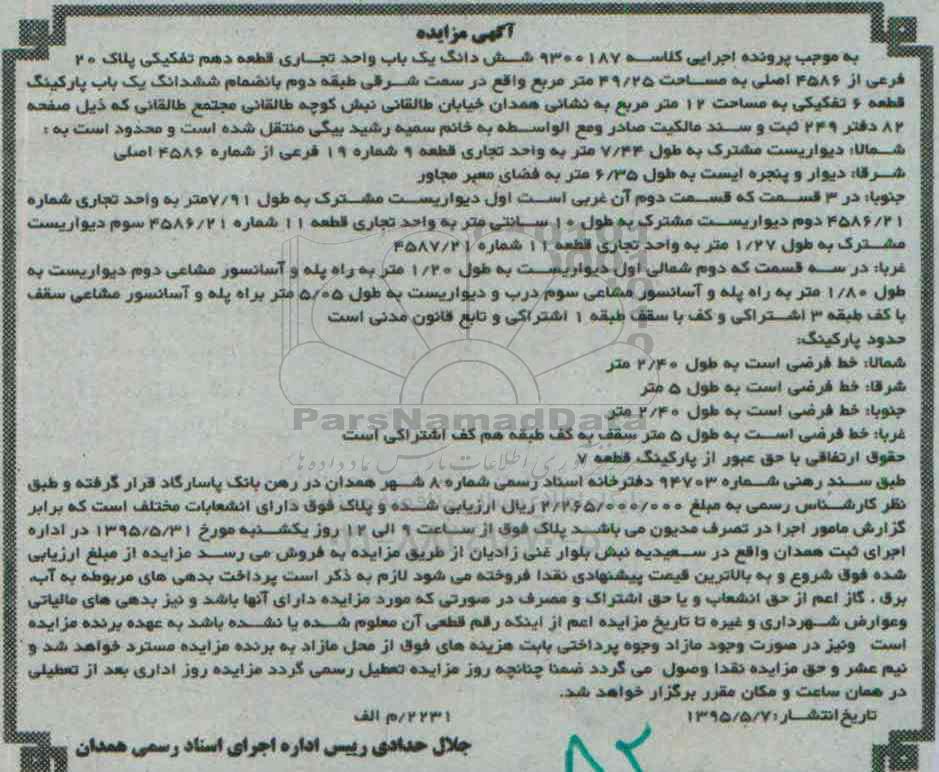 آگهی مزایده
به موجب پرونده اجرایی کلاسه ۹۳۰۰۱۸۷ شش دانگ یک باب واحد تجاری قطعه دهم تفکیکی پلاک ۲۰
فرعی از ۴۵۸۶ اصلی به مساحت ۴۹/۲۵ متر مربع واقع در سمت شرقی طبقه دوم بانضمام ششدانگ یک باب پارکینگ
قطعه ۶ تفکیکی به مساحت ۱۲ متر مربع به نشانی همدان خیابان طالقانی نبش کوچه طالقانی مجتمع طالقانی که ذیل صفحه
۸۲ دفتر ۲۴۹ ثبت و سند مالکیت صادر ومع الواسطه به خانم سمیه رشید بیگی منتقل شده است و محدود است به :
شمالا: دیواریست مشترک به طول ۷/۴۴ متر به واحد تجاری قطعه ۹ شماره ۱۹ فرعی از شماره ۴۵۸۶ اصلی
شرقا: دیوار و پنجره ایست به طول ۶/۳۵ متر به فضای معبر مجاور
جنوبا: در ۳ قسمت که قسمت دوم آن غربی است اول دیواریست مشترک به طول ۷/۹۱متر به واحد تجاری شماره
۴۵۸۶/۲۱ دوم دیواریست مشترک به طول ۱۰ سانتی متر به واحد تجاری قطعه ۱۱ شماره ۴۵۸۶/۲۱ سوم دیواریست
مشترک به طول ۱/۲۷ متر به واحد تجاری قطعه ۱۱ شماره ۴۵۸۷/۲۱
غربا: در سه قسمت که دوم شمالی اول دیواریست به طول ۱/۲۰ متر به راه پله و آسانسور مشاعی دوم دیواریست به
طول ۱/۸۰ متر به راه پله و آسانسور مشاعی سوم درب و دیواریست به طول ۵/۰۵ متر براه پله و آسانسور مشاعی سقف
با کف طبقه ۳ اشتراکی و کف با سقف طبقه ۱ اشتراکی و تابع قانون مدنی است
حدود پارکینگ:
شمالا: خط فرضی است به طول ۲/۴۰ متر
شرقا: خط فرضی است به طول ۵ متر
جنوبا: خط فرضی است به طول ۲/۴۰ متر
ParsNamadData
غربا: خط فرضی است به طول ۵ متر سقف به کف طبقه هم کف اشتراکی است
حقوق ارتفاقی با حق عبور از پارکینگ قطعه ۷
طبق سند رهنی شماره ۹۴۷۰۳ دفترخانه اسناد رسمی شماره ۸ شهر همدان در رهن بانک پاسارگاد قرار گرفته و طبق
نظر کارشناس رسمی به مبلغ ۲/۲۶۵/۰۰۰/۰۰۰ ریال ارزیابی شده و پلاک فوق دارای انشعابات مختلف است که برابر
گزارش مامور اجرا در تصرف مدیون می باشد پلاک فوق از ساعت ۹ الی ۱۲ روز یکشنبه مورخ ۱۳۹۵/۵/۳۱ در اداره
اجرای ثبت همدان واقع در سعیدیه نبش بلوار غنی زادیان از طریق مزایده به فروش می رسد مزایده از مبلغ ارزیابی
شده فوق شروع و به بالاترین قیمت پیشنهادی نقدا فروخته می شود لازم به ذکر است پرداخت بدهی های مربوطه به آب،
برق ، گاز اعم از حق انشعاب و یا حق اشتراک و مصرف در صورتی که مورد مزایده دارای آنها باشد و نیز بدهی های مالیاتی
وعوارض شهرداری و غیره تا تاریخ مزایده اعم از اینکه رقم قطعی آن معلوم شده یا نشده باشد به عهده برنده مزایده
است ونیز در صورت وجود مازاد وجوه پرداختی بابت هزینه های فوق از محل مازاد به برنده مزایده مسترد خواهد شد و
نیم عشر و حق مزایده نقدا وصول می گردد ضمنا چنانچه روز مزایده تعطیل رسمی گردد مزایده روز اداری بعد از تعطیلی
در همان ساعت و مکان مقرر برگزار خواهد شد.
تاریخ انتشار:۱۳۹۵/۵/۷ ۲۲۳۱/م الف
جلال حدادی رییس اداره اجرای اسناد رسمی همدان
۸۲